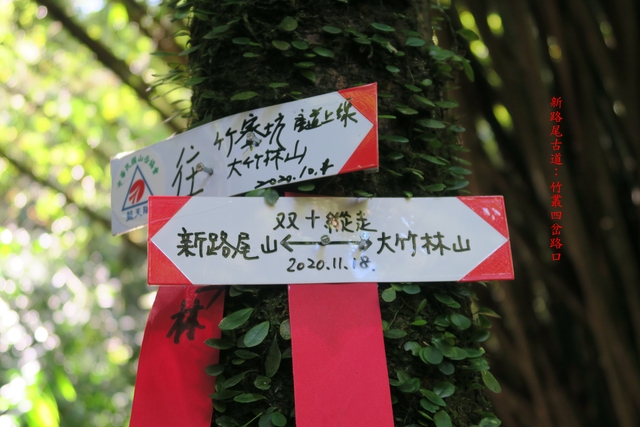 往 竹寮坑 產道上線
大竹林山
2020.10.4
双十縱走
新路尾山 大竹林山
2020.11.18.
林
新路尾古道：竹叢四岔路口